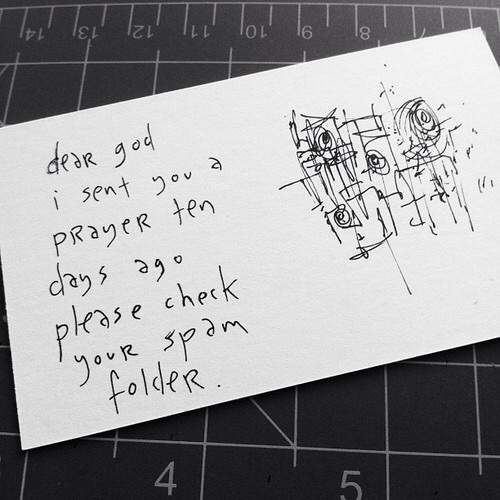 14 13 12 11 10 9 8 7
dear god
i sent you a
prayer ten
days ago
please check
your spam
folder.
4 5